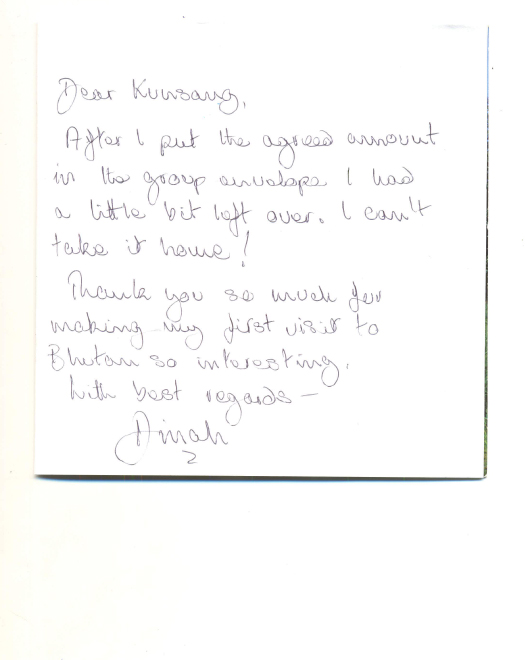 Dear Kunsang,
After I put the agreed amount
in the group envelope I had
a little bit left over. I can't
take it home!
Thank you so much for
making my first visit to
Bhutan so interesting.
With best regards —
Dinah